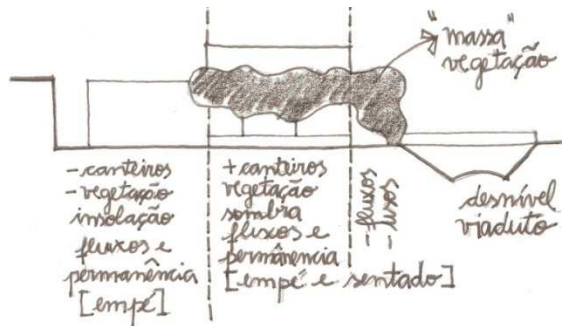 "massa"
vegetação
- canteiros
- vegetação
insolação
fluxos e
permanência
[empé]
+ canteiros
vegetação
sombra
fluxos e
permânência
[empé e sentado]
- fluxos
- usos
desnível
viaduto